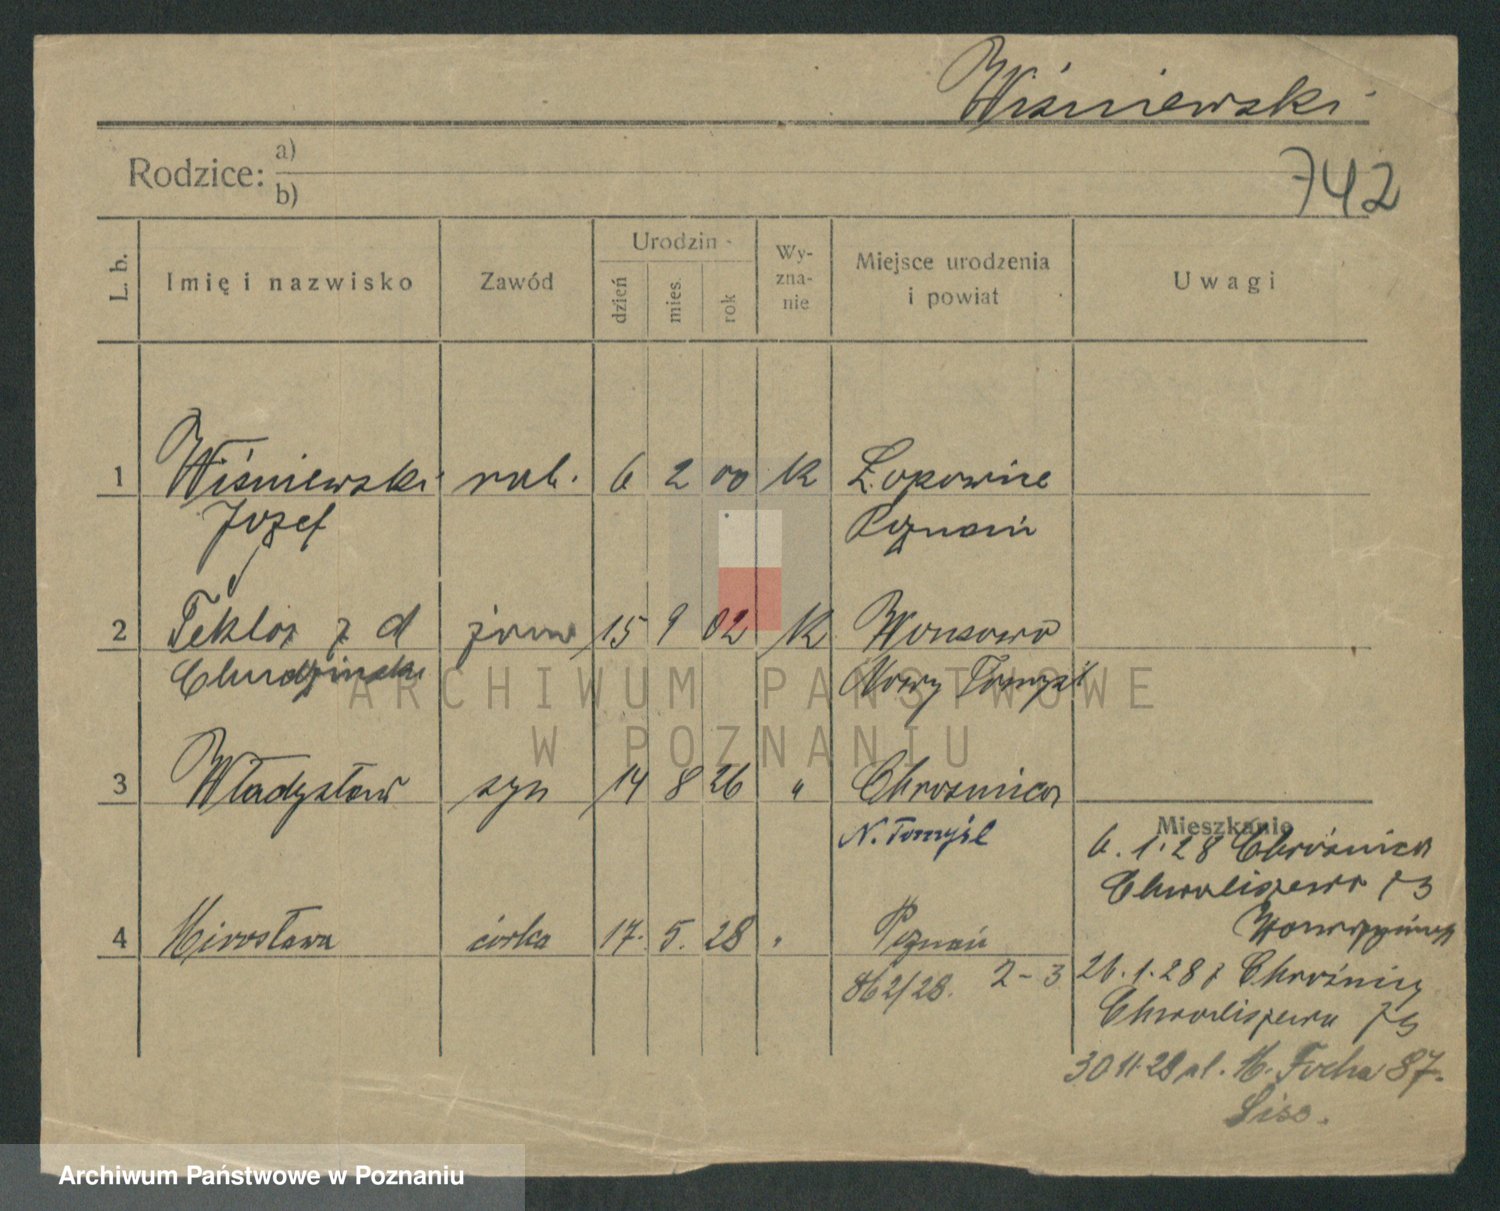 Wiśniewski
Rodzice: a)
b)
742
L. b.
Imię i nazwisko
Zawód
Urodzin
dzień
mies.
rok
Wy-
zna-
nie
Miejsce urodzenia
i powiat
Uwagi
1 Wiśniewski rob. 6 2 00 K Łopowice
Józef Poznań
2 Tekla z d żona 15 9 02 K Wonsowo
Chudzinska Nowy Tomyśl
ARCHIWUM PAŃSTWOWE
W POZNANIU
3 Władysław syn 14 8 26 " Chrośnica
N. Tomyśl
Mieszkanie
6.1.28 Chrośnica
Chwaliszewo 73
4 Mirosława córka 17. 5. 28 " Poznań
862/28. 2-3
26.1.28 z Chrośnicy
Chwaliszewo 73
30 11.28 ul. M. Focha 87.
Archiwum Państwowe w Poznaniu